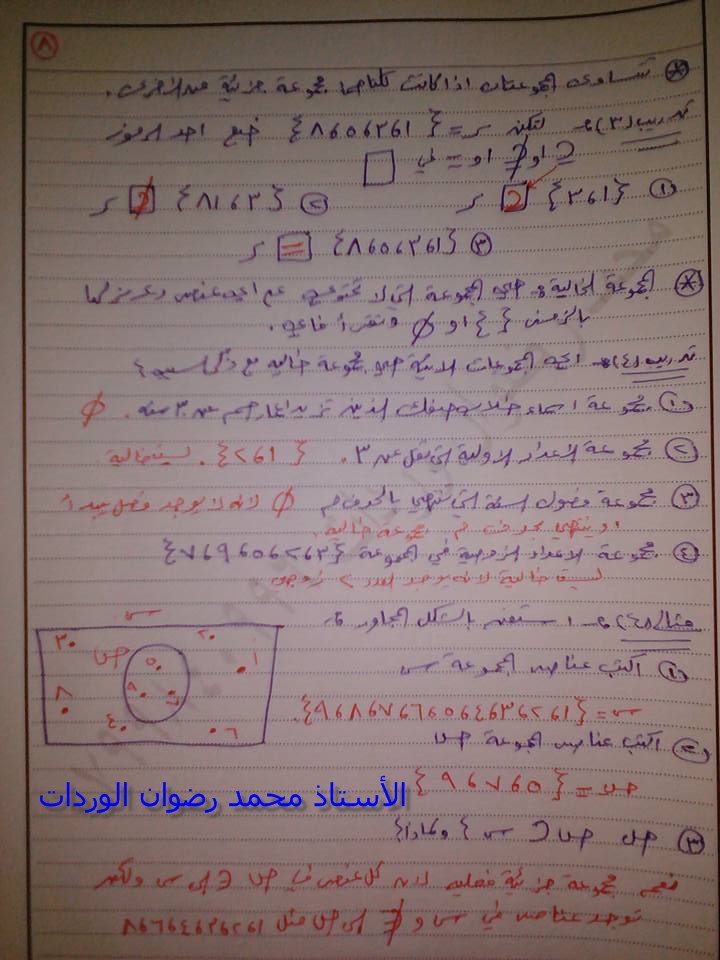 ٨
* تتساوى المجموعتان اذا كانت كلتاهما مجموعة جزئية من الأخرى.
تدريب (٣) لتكن س = {١،٣،٥،٨} ضع احد الرموز
⊂ او ⊄ او = في □
① {١،٣} ⊂ س ② {٣،٨١} ⊄ س
③ {١،٣،٥،٨} = س
* المجموعة الخالية هي المجموعة التي لا تحتوي على اي عنصر ويرمز لها
بالرمز { } او ∅ وتقرأ فاي.
تدريب (٤) اي المجموعات الآتية هي مجموعة خالية مع ذكر السبب؟
① مجموعة اسماء طلاب صفك الذين تزيد اعمارهم عن ٣٠ سنة. ∅
② مجموعة الاعداد الاولية التي تقل عن ٣. {١،٢}. ليست خالية
③ مجموعة فصول السنة التي تنتهي بالحرف م ∅ لانه لا يوجد فصل يبدأ
او ينتهي بحرف م مجموعة خالية.
④ مجموعة الاعداد الزوجية في المجموعة {٣،٢،٥،٩،٧}
ليست خالية لانه يوجد العدد ٢ زوجي
مثال (٤) استعن بالشكل المجاور
س
٣ ٢ ١ ص ٥ ٨ ٩ ٧ ٤ ٦
① اكتب عناصر المجموعة س
س = {١،٢،٣،٤،٥،٦،٧،٨،٩}.
② اكتب عناصر المجموعة ص
ص = {٥،٧،٩}
الأستاذ محمد رضوان الوردات
③ هل ص ⊂ س ؟ ولماذا؟
نعم مجموعة جزئية فعلية لان كل عنصر في ص ∈ الى س ولكن
توجد عناصر في س و ∉ الى ص مثل ١،٢،٣،٤،٦،٨